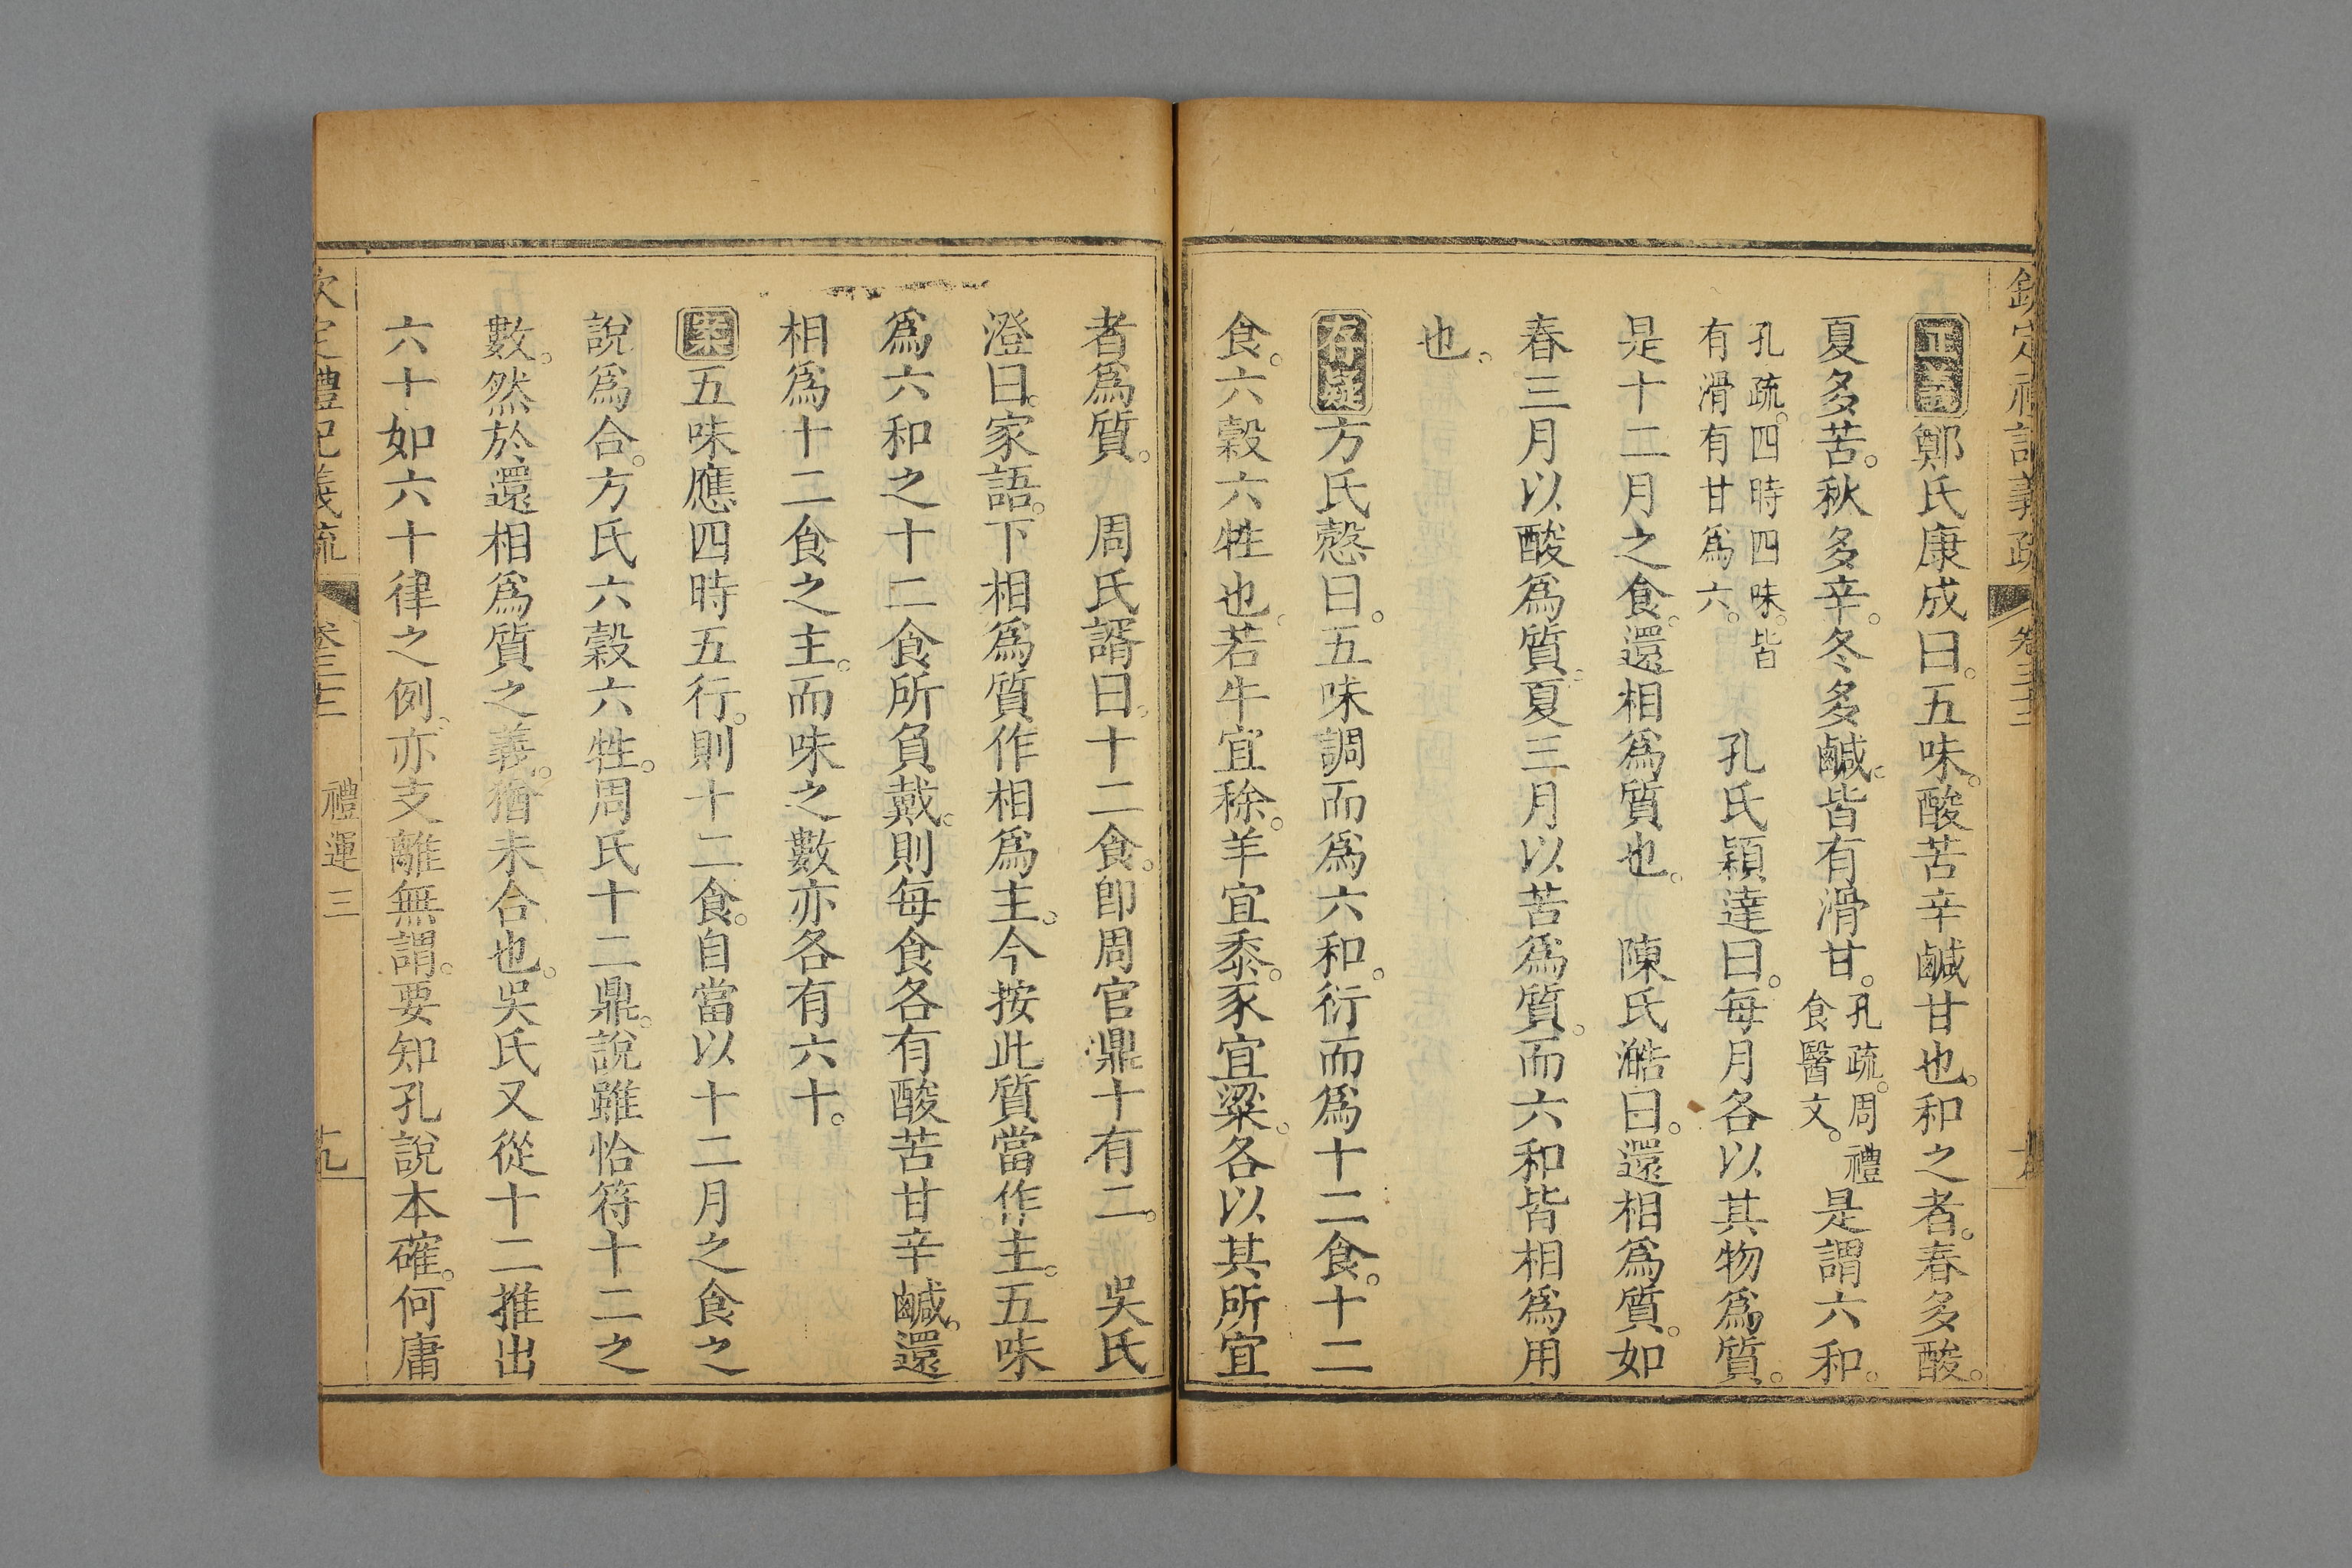 欽定禮記義疏 卷三十二
正義鄭氏康成曰。五味。酸苦辛鹹甘也。和之者。春多酸。
夏多苦。秋多辛。冬多鹹。皆有滑甘。孔疏。周禮食醫文。是謂六和。
孔疏。四時四味。皆有滑有甘爲六。孔氏穎達曰。每月各以其物爲質。
是十二月之食。還相爲質也。陳氏澔曰。還相爲質。如
春三月以酸爲質。夏三月以苦爲質。而六和皆相爲用
也。
存疑方氏慤曰。五味調而爲六和。衍而爲十二食。十二
食。六穀六牲也。若牛宜稌。羊宜黍。豕宜粱。各以其所宜
者爲質。周氏諝曰。十二食。卽周官鼎十有二。吳氏
澄曰。家語。下相爲質作相爲主。今按此質當作主。五味
爲六和之十二食所負戴。則每食各有酸苦甘辛鹹。還
相爲十二食之主。而味之數亦各有六十。
案五味應四時五行。則十二食。自當以十二月之食之
說爲合。方氏六穀六牲。周氏十二鼎。說雖恰符十二之
數。然於還相爲質之義。猶未合也。吳氏又從十二推出
六十如六十律之例。亦支離無謂。要知孔說本確。何庸
欽定禮記義疏 卷三十二 禮運三 十九